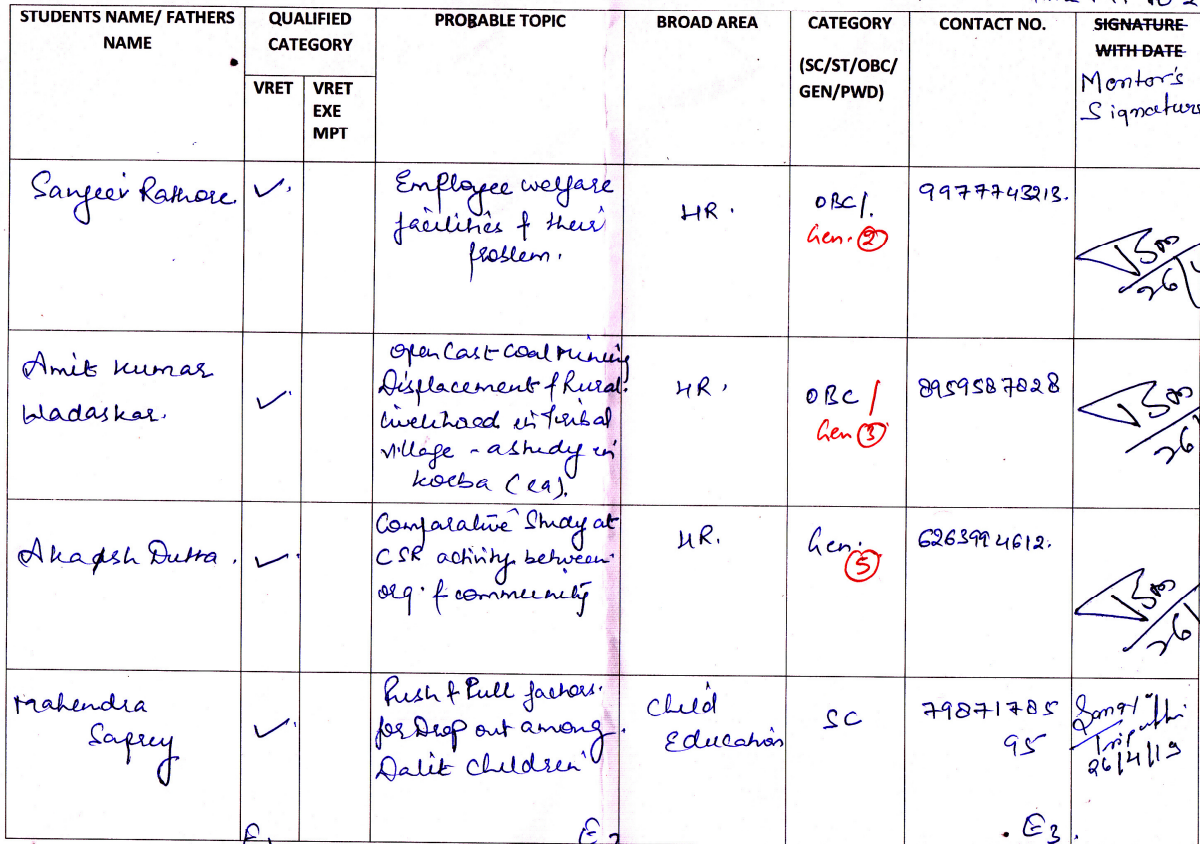 STUDENTS NAME/ FATHERS
NAME
QUALIFIED
CATEGORY
VRET
VRET
EXE
MPT
PROBABLE TOPIC
BROAD AREA
CATEGORY
(SC/ST/OBC/
GEN/PWD)
CONTACT NO.
SIGNATURE
WITH DATE
Mentor's
Signature
Sanjeev Rathore.
Employee welfare
facilities & their
problem.
HR.
OBC/.
Gen. 2
9977743213.
26
Amit Kumar
Wadaskar.
Open Cast Coal Mining
Displacement & Rural
livelihood in Tribal
village - a study in
Korba (CG).
HR.
OBC /
Gen 3
8959587828
26
Akadsh Dutta.
Comparative Study at
CSR activity between
org. & community
HR.
Gen.
5
6263994612.
26
Mahendra
Saprey
Push & Pull factors.
for Drop out among
Dalit Children
Child
Education
SC
79871785
95
Tripathi
26/4/19
E3.